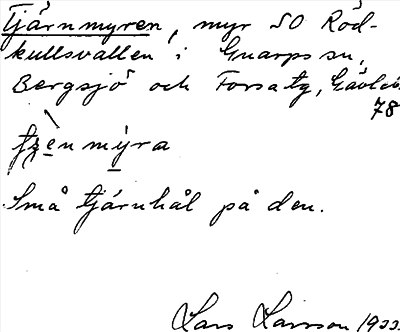 Tjärnmyren, myr SO Röd-
kullsvallen i Gnarps sn,
Bergsjö och Forsa tg, Gävleb.
78
myra
Små tjärnhål på den.
Lars Larsson 1933